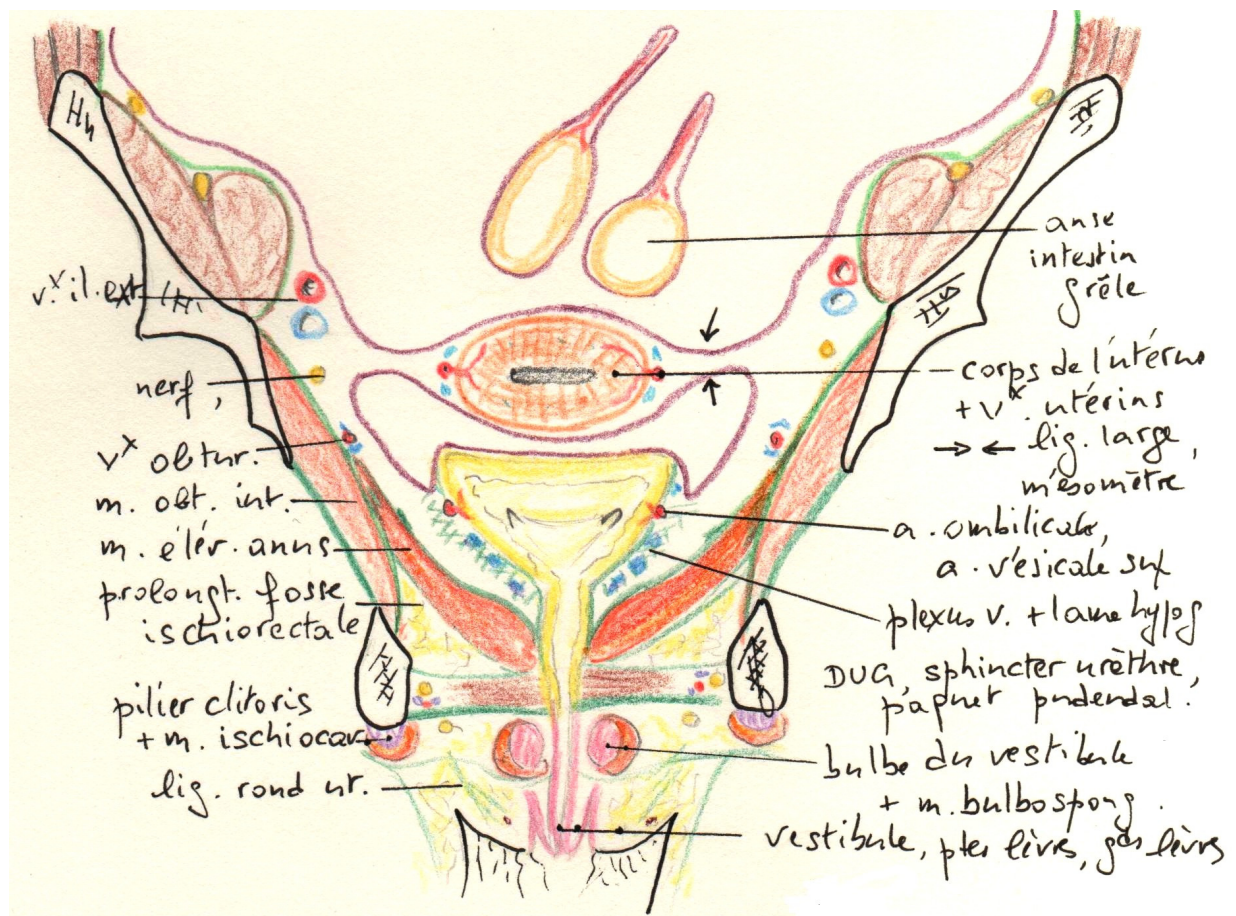 anse
intestin
grêle
vˣ il. ext
nerf,
vˣ obtur.
m. obt. int.
m. élév. anus
prolongt. fosse
ischiorectale
pilier clitoris
+ m. ischiocav
lig. rond ut.
corps de l'utérus
+ vˣ. utérins
→ ← lig. large,
mésomètre
a. ombilicale,
a. vésicale sup
plexus v. + lame hypog
DUG, sphincter urèthre,
paquet pudendal.
bulbe du vestibule
+ m. bulbospong.
vestibule, ptes lèvres, gdes lèvres